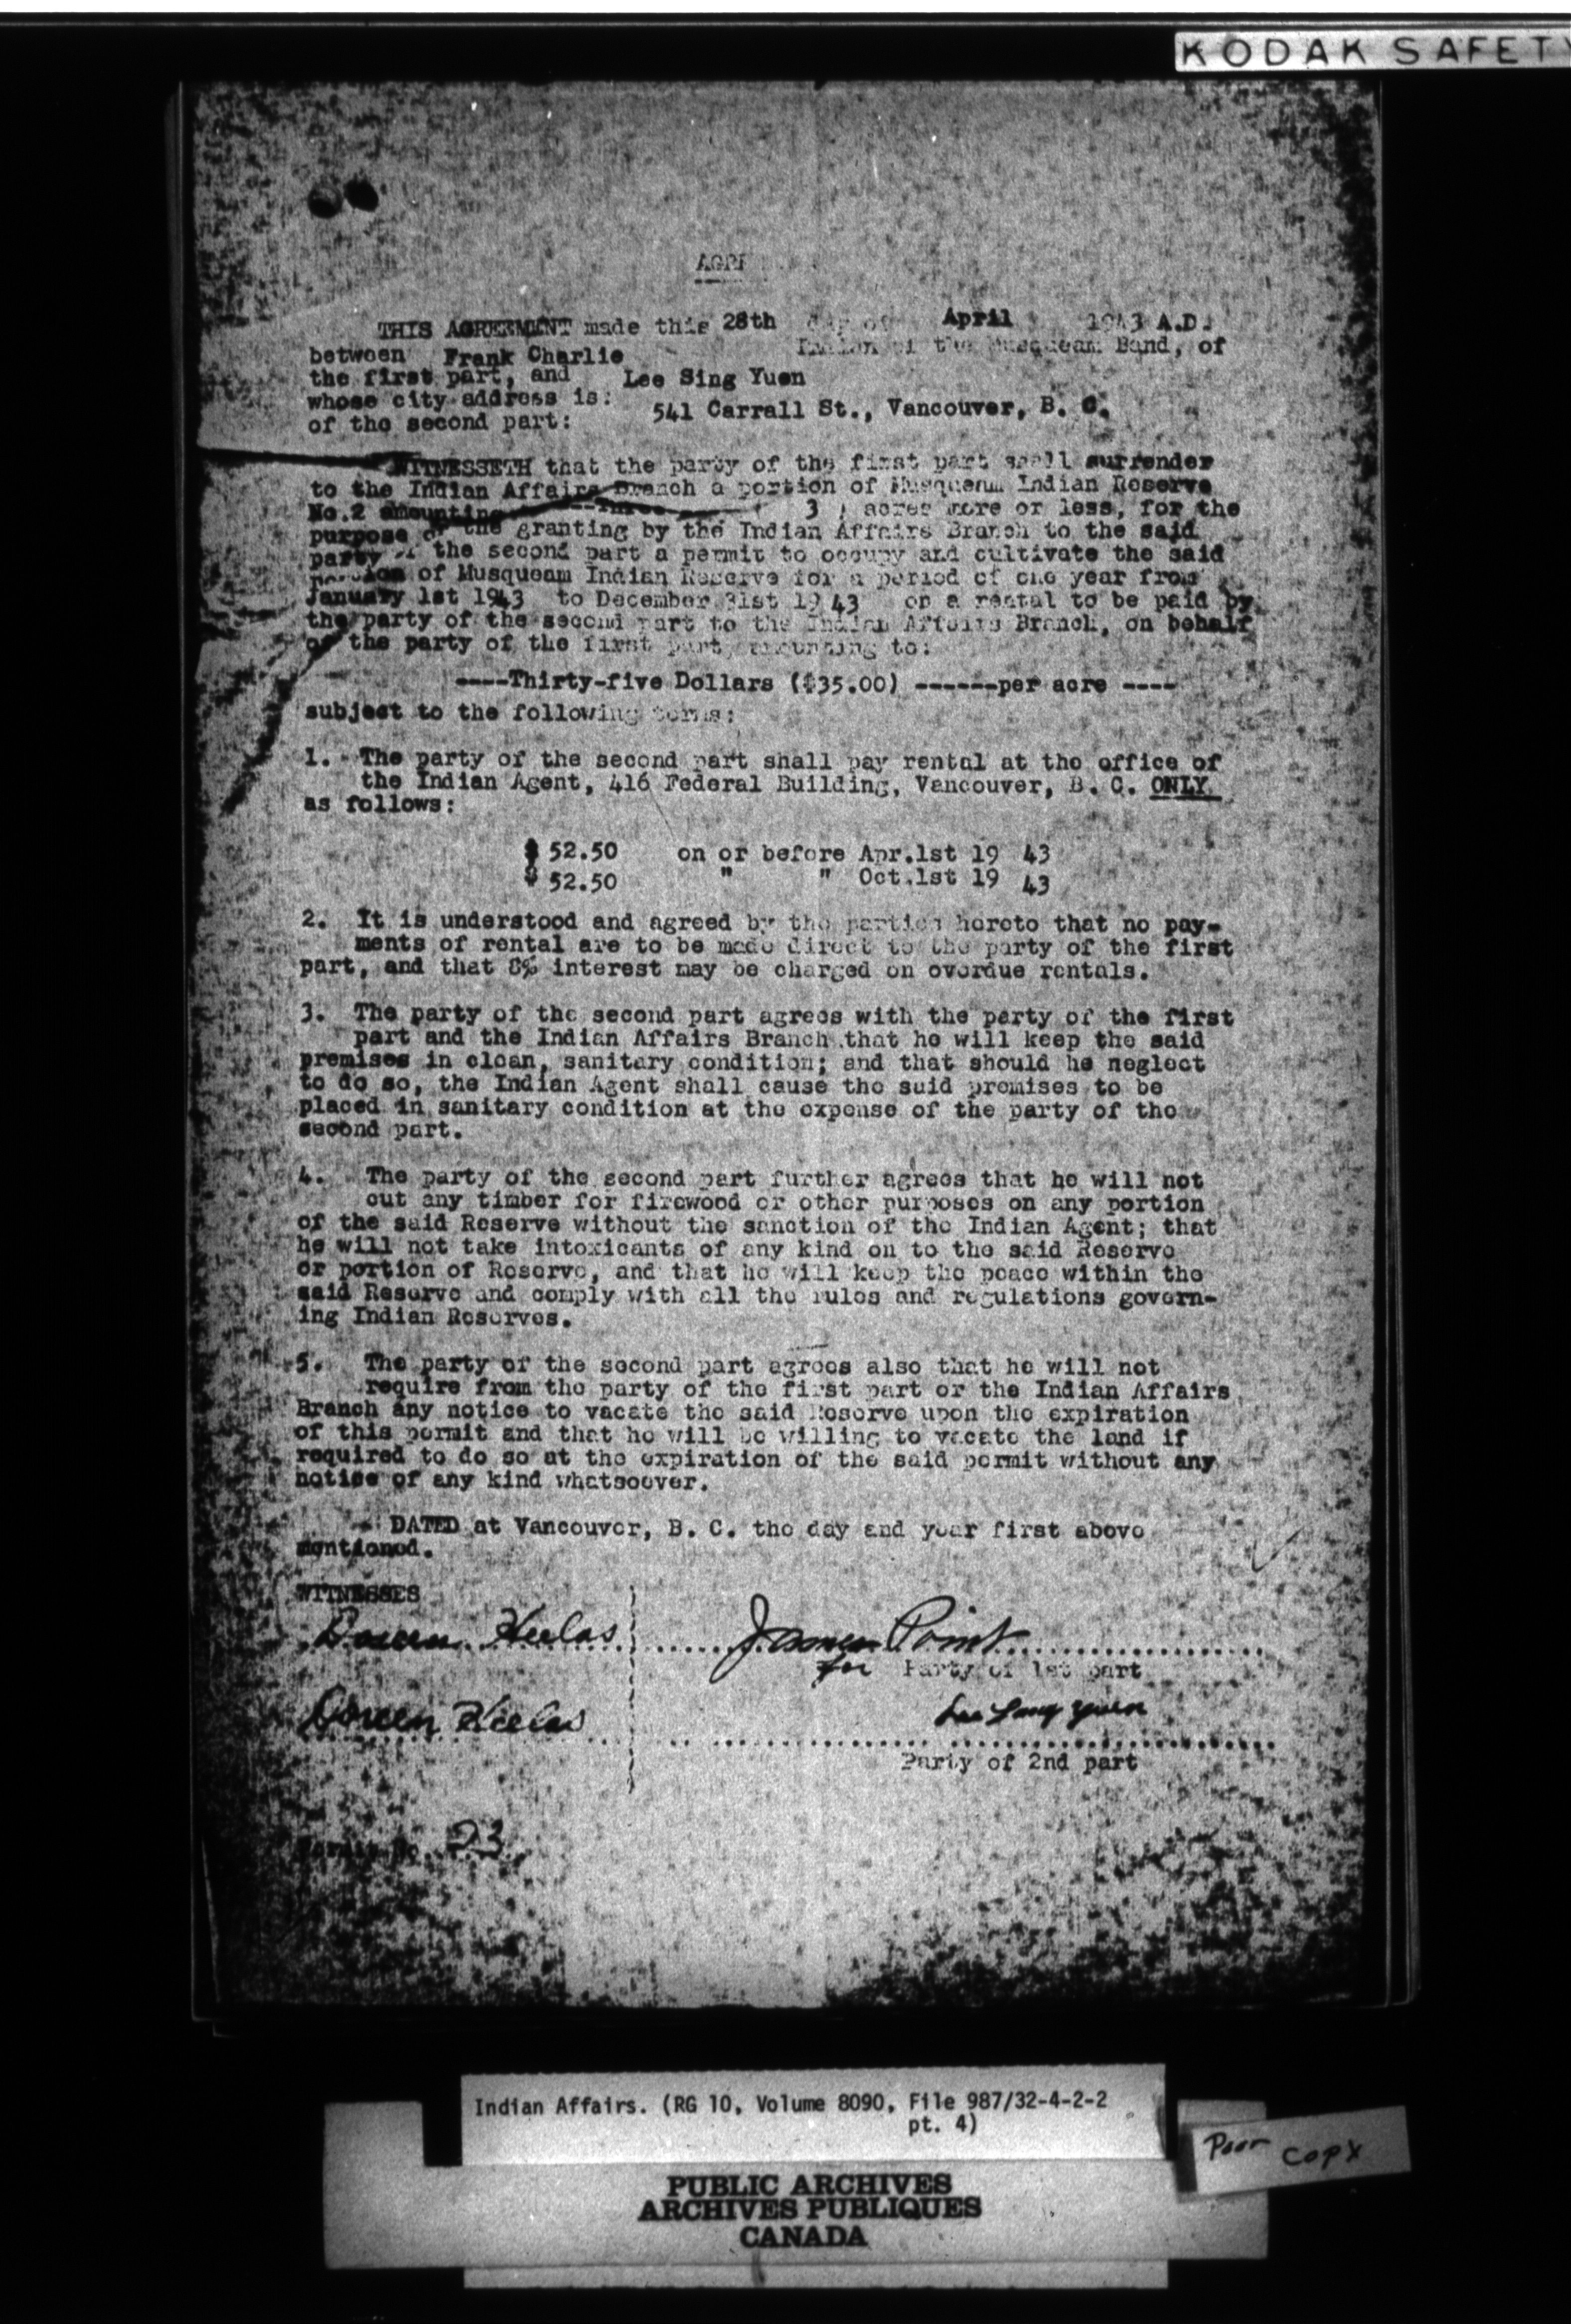 KODAK SAFETY
THIS AGREEMENT made this 28th day of April 1943 A.D.
between Frank Charlie Indian of the Musqueam Band, of
the first part, and Lee Sing Yuen
whose city address is:
541 Carrall St., Vancouver, B. C.
of the second part:
WITNESSETH that the party of the first part shall surrender
to the Indian Affairs Branch a portion of Musqueam Indian Reserve
No.2 amounting --Three 3 ) acres more or less, for the
purpose of the granting by the Indian Affairs Branch to the said
party of the second part a permit to occupy and cultivate the said
portion of Musqueam Indian Reserve for a period of one year from
January 1st 1943 to December 31st 1943 on a rental to be paid by
the party of the second part to the Indian Affairs Branch, on behalf
of the party of the first part, amounting to:
----Thirty-five Dollars ($35.00) ------per acre ----
subject to the following terms:
1. The party of the second part shall pay rental at the office of
the Indian Agent, 416 Federal Building, Vancouver, B. C. ONLY
as follows:
$ 52.50 on or before Apr.1st 19 43
$ 52.50 " " Oct.1st 19 43
2. It is understood and agreed by the parties hereto that no pay-
ments of rental are to be made direct to the party of the first
part, and that 8% interest may be charged on overdue rentals.
3. The party of the second part agrees with the party of the first
part and the Indian Affairs Branch that he will keep the said
premises in clean, sanitary condition; and that should he neglect
to do so, the Indian Agent shall cause the said premises to be
placed in sanitary condition at the expense of the party of the
second part.
4. The party of the second part further agrees that he will not
cut any timber for firewood or other purposes on any portion
of the said Reserve without the sanction of the Indian Agent; that
he will not take intoxicants of any kind on to the said Reserve
or portion of Reserve, and that he will keep the peace within the
said Reserve and comply with all the rules and regulations govern-
ing Indian Reserves.
5. The party of the second part agrees also that he will not
require from the party of the first part or the Indian Affairs
Branch any notice to vacate the said Reserve upon the expiration
of this permit and that he will be willing to vacate the land if
required to do so at the expiration of the said permit without any
notice of any kind whatsoever.
DATED at Vancouver, B. C. the day and year first above
mentioned.
WITNESSES
Doreen Heelas James Point
for Party of 1st part
Doreen Heelas Lee Sing Yuen
Party of 2nd part
Permit No. 23
Indian Affairs. (RG 10, Volume 8090, File 987/32-4-2-2
pt. 4)
Poor copy
PUBLIC ARCHIVES
ARCHIVES PUBLIQUES
CANADA